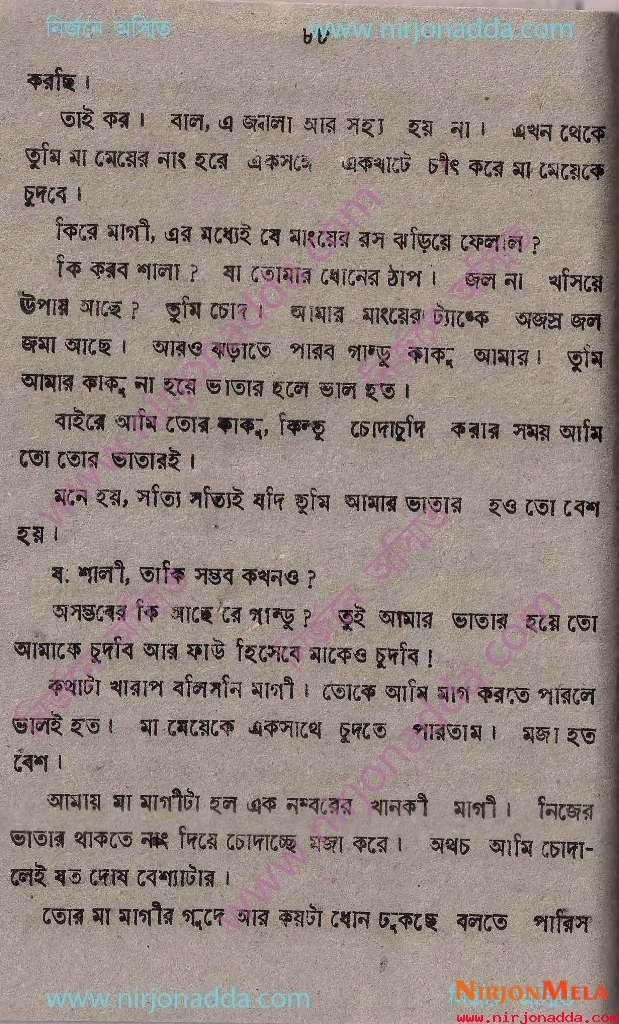 নির্জনে অস্মিত www.nirjonadda.com
৮৮
করছি।
তাই কর। বাল, এ জ্বালা আর সহ্য হয় না। এখন থেকে
তুমি মা মেয়ের নাং হবে একসঙ্গে একখাটে চীৎ করে মা মেয়েকে
চুদবে।
কিরে মাগী, এর মধ্যেই যে মাংয়ের রস ঝড়িয়ে ফেললি?
কি করব শালা? যা তোমার ধোনের ঠাপ। জল না খসিয়ে
উপায় আছে? তুমি চোদ। আমার মাংয়ের ট্যাঙ্কে অজস্র জল
জমা আছে। আরও ঝড়াতে পারব গান্ডু কাকু আমার। তুমি
আমার কাকু না হয়ে ভাতার হলে ভাল হত।
বাইরে আমি তোর কাকু, কিন্তু চোদাচুদি করার সময় আমি
তো তোর ভাতারই।
মনে হয়, সত্যি সত্যিই যদি তুমি আমার ভাতার হও তো বেশ
হয়।
য: শালী, তাকি সম্ভব কখনও?
অসম্ভবের কি আছে রে গান্ডু? তুই আমার ভাতার হয়ে তো
আমাকে চুদবি আর ফাউ হিসেবে মাকেও চুদবি!
কথাটা খারাপ বলিসনি মাগী। তোকে আমি মাগ করতে পারলে
ভালই হত। মা মেয়েকে একসাথে চুদতে পারতাম। মজা হত
বেশ।
আমায় মা মাগীটা হল এক নম্বরের খানকী মাগী। নিজের
ভাতার থাকতে নাং দিয়ে চোদাচ্ছে মজা করে। অথচ আমি চোদা-
লেই যত দোষ বেশ্যাটার।
তোর মা মাগীর গুদে আর কয়টা ধোন ঢুকছে বলতে পারিস
www.nirjonadda.com
নির্জনে অস্মিত
www.nirjonadda.com
NIRJONMELA
www.nirjonadda.com